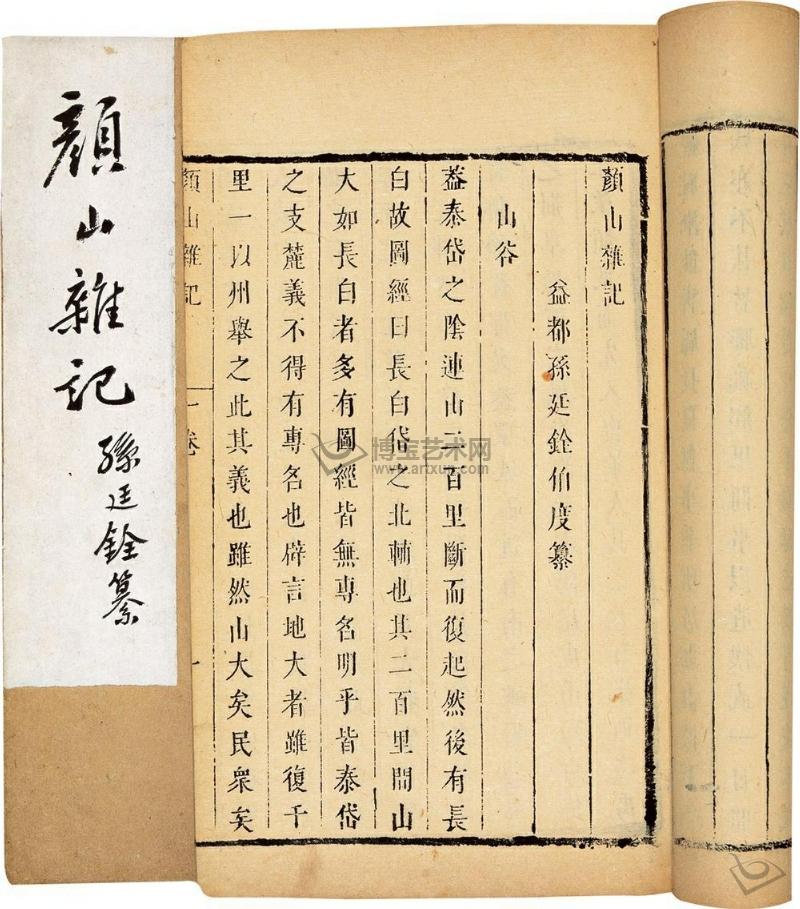 顏山雜記
益都孫廷銓伯度纂
山谷
葢泰岱之陰連山二百里斷而復起然後有長
白故圖經曰長白岱之北輔也其二百里間山
大如長白者多有圖經皆無專名明乎皆泰岱
之支麓義不得有專名也辟言地大者雖復千
里一以州舉之此其義也雖然山大矣民衆矣
顏山雜記 一卷 一
顏山雜記
孫廷銓纂
博宝艺术网
www.artxun.com